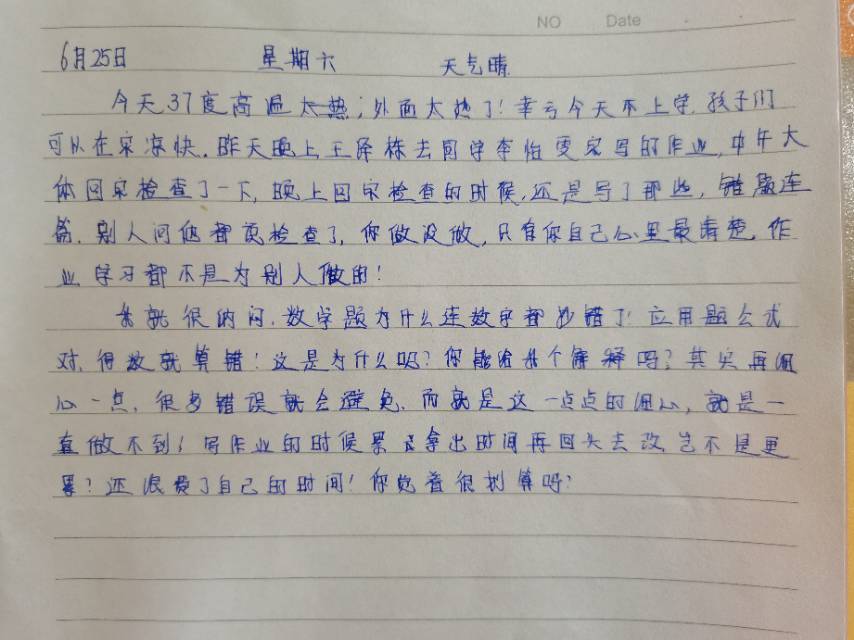 NO Date
6月25日 星期六 天气晴
今天37度高温太热;外面太热了!幸亏今天不上学,孩子们
可以在家凉快。昨天晚上王泽栋去同学李怡雯家写的作业,中午大
体回家检查了一下,晚上回家检查的时候,还是写了那些,错题连
篇,别人问他都说检查了,你做没做,只有你自己心里最清楚,作
业学习都不是为别人做的!
我就很纳闷,数学题为什么连数字都抄错了!应用题公式
对,得数就算错!这是为什么呢?你能给我个解释吗?其实再细
心一点,很多错误就会避免,而就是这一点点的细心,就是一
直做不到!写作业的时候累 拿出时间再回头去改,岂不是更
累?还浪费了自己的时间!你觉着很划算吗?